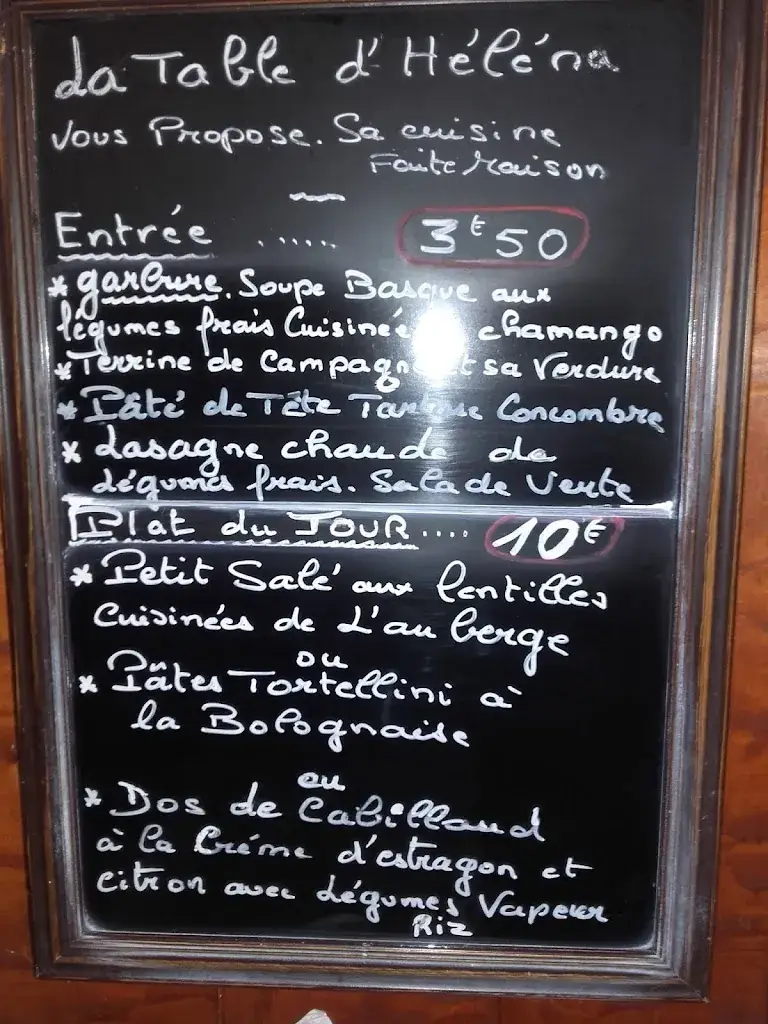 La Table d'Héléna
Vous Propose. Sa cuisine
Faite Maison
Entrée ...... 3€50
* garbure. Soupe Basque aux
légumes frais Cuisinée chamango
* Terrine de Campagne et sa Verdure
* Pâté de Tête Concombre
* Lasagne chaude de
Légumes frais. Salade Verte
Plat du JOUR .... 10€
* Petit Salé aux lentilles
Cuisinées de L'auberge
ou
* Pâtes Tortellini à
la Bolognaise
ou
* Dos de Cabillaud
à la Créme d'estragon et
citron avec Légumes Vapeur
Riz